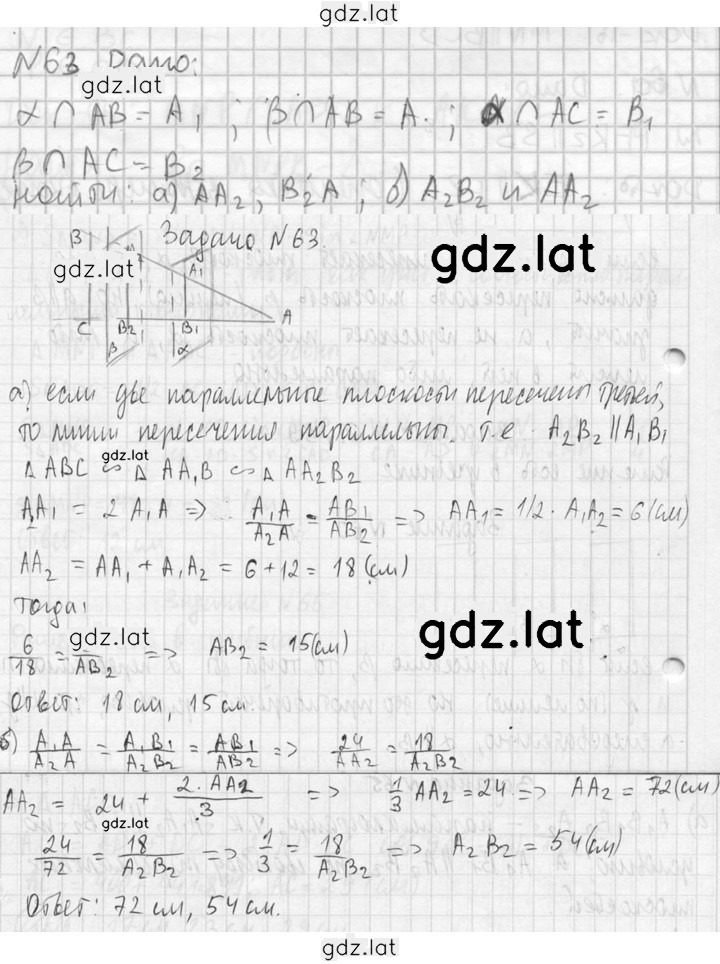 gdz.lat
N63 Дано:
gdz.lat
α ∩ AB = A₁ ; β ∩ AB = A. ; α ∩ AC = B₁
β ∩ AC = B₂
найти: а) AA₂, B₂A ; б) A₂B₂ и AA₂
Задача N63.
gdz.lat
B
gdz.lat
A₁
C B₂ B₁ A
β α
а) если две параллельные плоскости пересечены третьей,
то линии пересечения параллельны. т.е A₂B₂ || A₁B₁
gdz.lat
Δ ABC ∽ Δ AA₁B ∽ Δ AA₂B₂
A₂A₁ = 2 A₁A => A₁A/A₂A = AB₁/AB₂ => AA₁ = 1/2 · A₁A₂ = 6 (см)
AA₂ = AA₁ + A₁A₂ = 6 + 12 = 18 (см)
Тогда:
gdz.lat
gdz.lat
6/18 = /AB₂ => AB₂ = 15 (см)
Ответ: 18 см, 15 см.
б) A₁A/A₂A = A₁B₁/A₂B₂ = AB₁/AB₂ => 24/AA₂ = 18/A₂B₂
AA₂ = 24 + 2·AA₂/3 => 1/3 AA₂ = 24 => AA₂ = 72 (см)
gdz.lat
24/72 = 18/A₂B₂ => 1/3 = 18/A₂B₂ => A₂B₂ = 54 (см)
Ответ: 72 см, 54 см.
gdz.lat